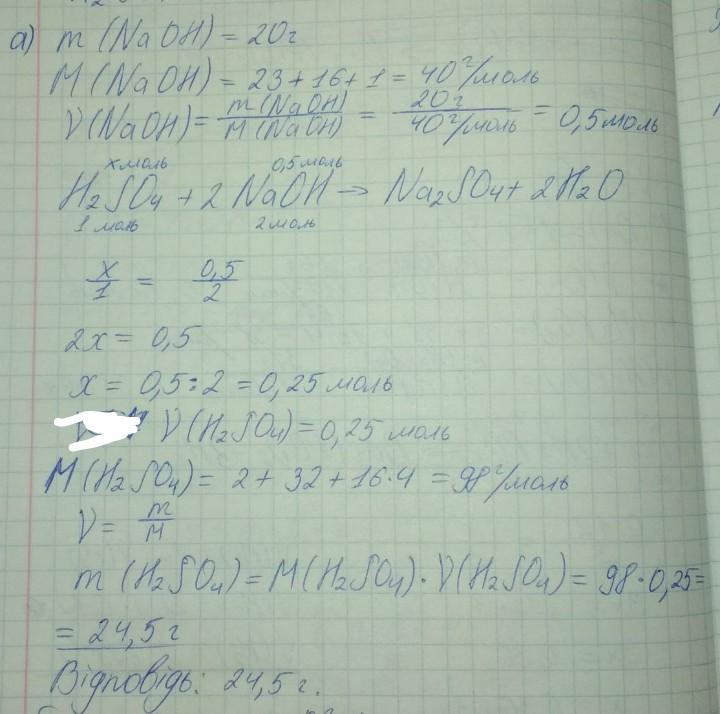 а) m (NaOH) = 20г
M (NaOH) = 23 + 16 + 1 = 40 г/моль
ν(NaOH) = m (NaOH) / M (NaOH) = 20 г / 40 г/моль = 0,5 моль
x моль 0,5 моль
H₂SO₄ + 2 NaOH → Na₂SO₄ + 2H₂O
1 моль 2 моль
x/1 = 0,5/2
2x = 0,5
x = 0,5 : 2 = 0,25 моль
ν(H₂SO₄) = 0,25 моль
M (H₂SO₄) = 2 + 32 + 16·4 = 98 г/моль
ν = m/M
m (H₂SO₄) = M(H₂SO₄) · ν(H₂SO₄) = 98 · 0,25 =
= 24,5 г
Відповідь: 24,5 г.